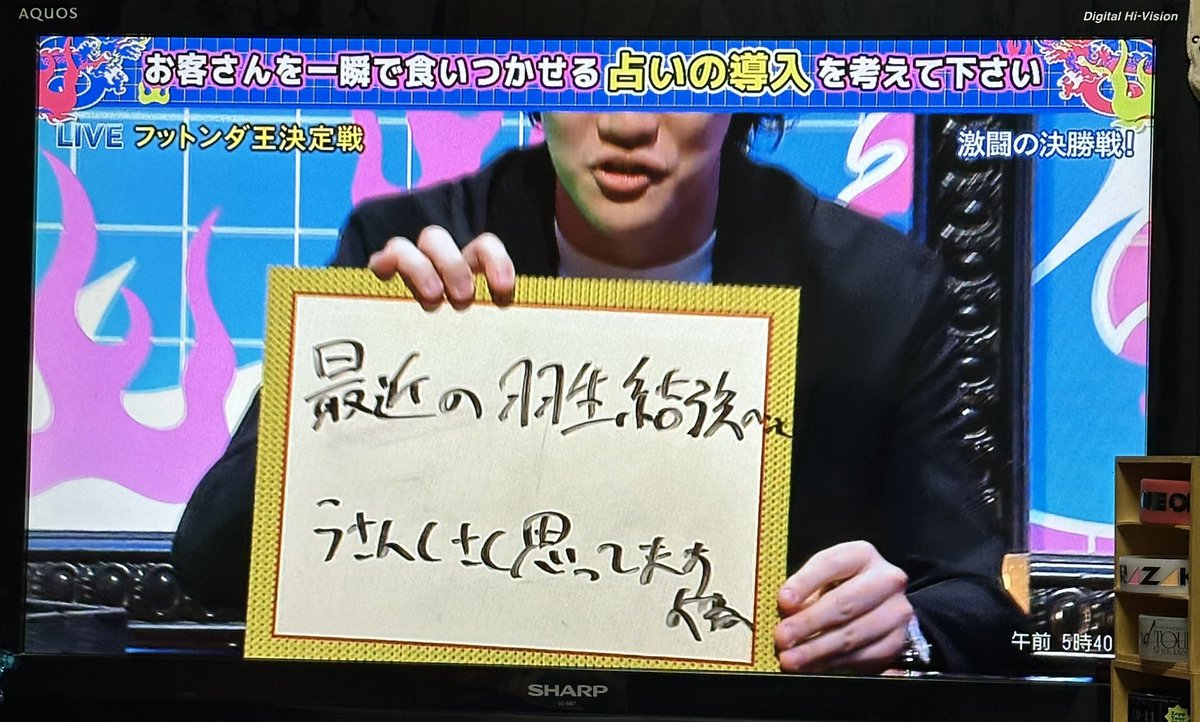 AQUOS
Digital Hi-Vision
お客さんを一瞬で食いつかせる占いの導入を考えて下さい
LIVE フットンダ王決定戦
激闘の決勝戦!
最近の羽生結弦のこと
うさんくさく思って
午前 5:40
SHARP